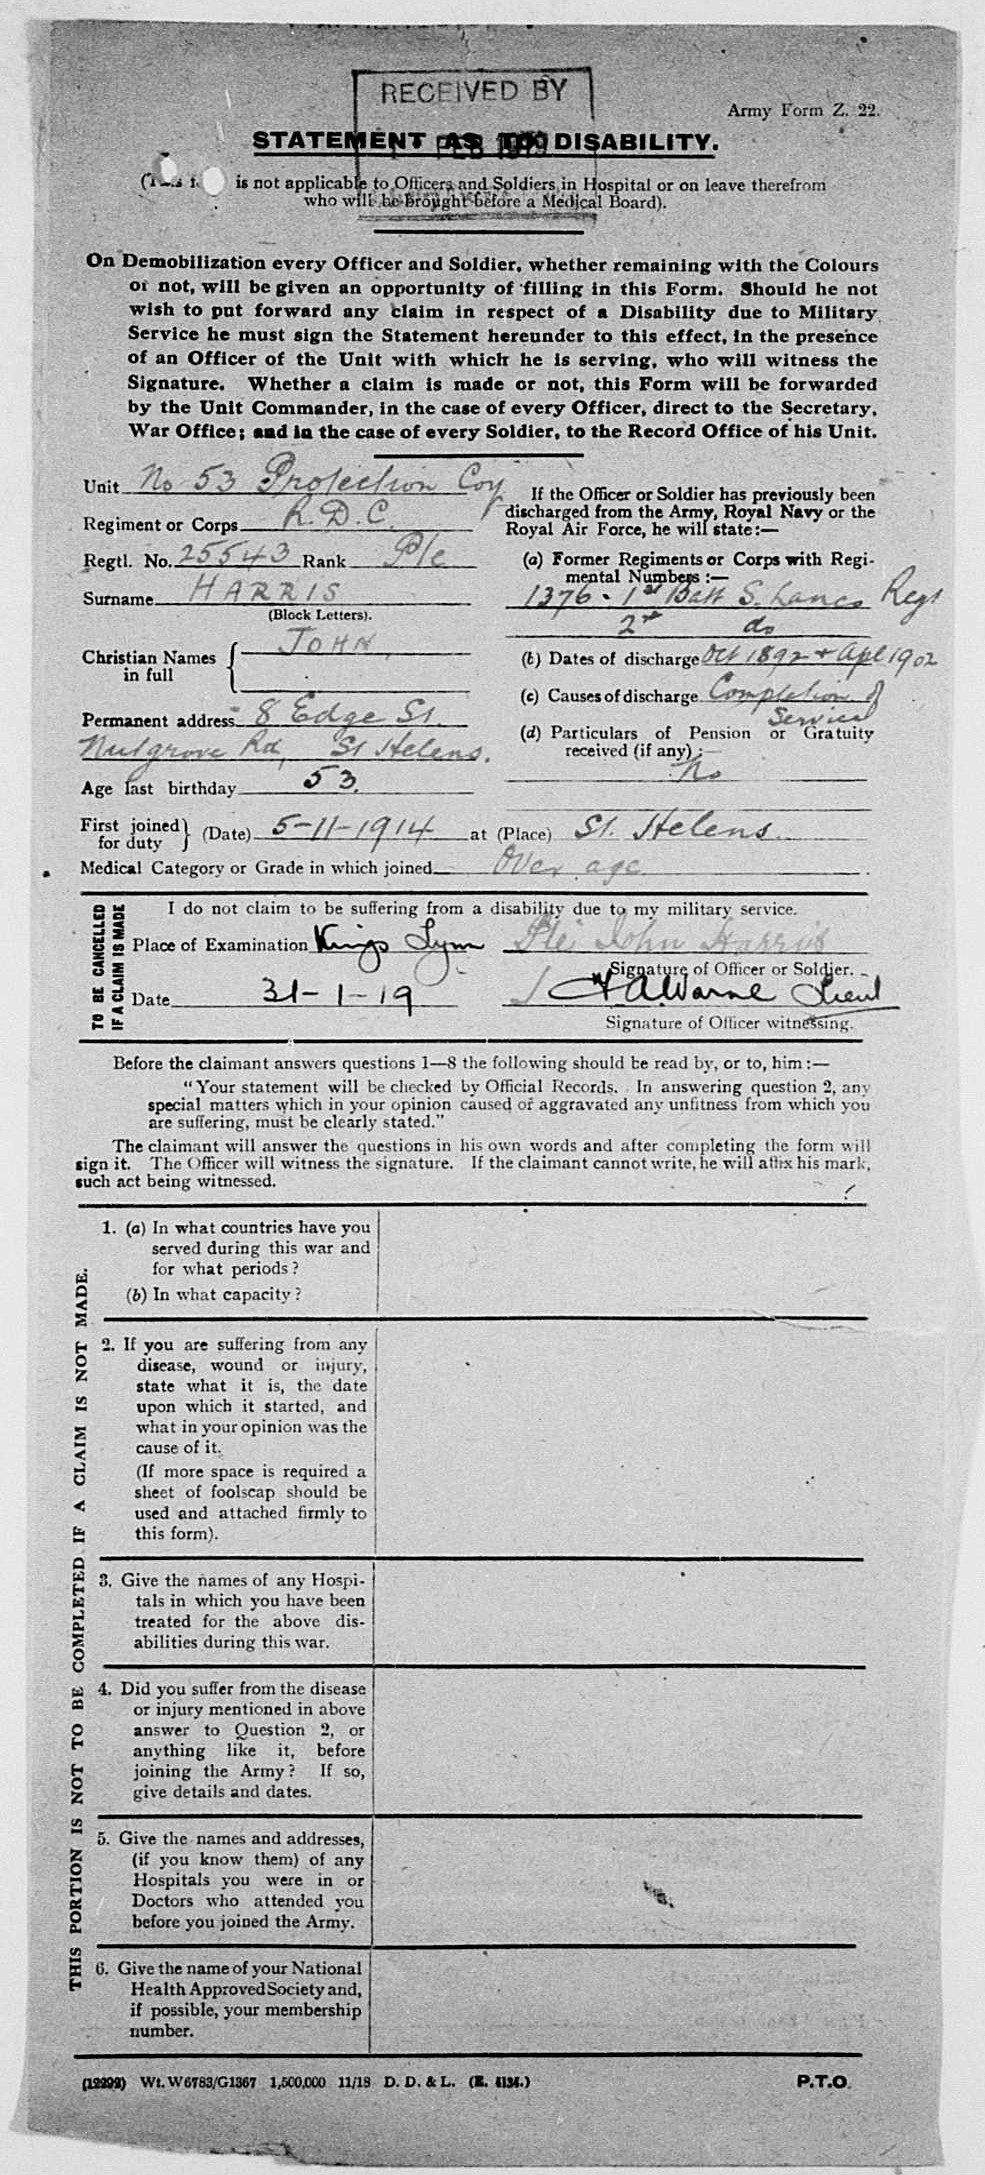 RECEIVED BY
FEB 1919
Army Form Z. 22.
STATEMENT AS TO DISABILITY.
is not applicable to Officers and Soldiers in Hospital or on leave therefrom
who will be brought before a Medical Board).
On Demobilization every Officer and Soldier, whether remaining with the Colours
or not, will be given an opportunity of filling in this Form. Should he not
wish to put forward any claim in respect of a Disability due to Military
Service he must sign the Statement hereunder to this effect, in the presence
of an Officer of the Unit with which he is serving, who will witness the
Signature. Whether a claim is made or not, this Form will be forwarded
by the Unit Commander, in the case of every Officer, direct to the Secretary,
War Office; and in the case of every Soldier, to the Record Office of his Unit.
Unit No 53 Protection Coy
Regiment or Corps R.D.C.
Regtl. No. 25543 Rank Pte
Surname HARRIS
(Block Letters).
Christian Names in full JOHN
Permanent address 8 Edge St.
Nutgrove Rd, St Helens.
Age last birthday 53.
If the Officer or Soldier has previously been
discharged from the Army, Royal Navy or the
Royal Air Force, he will state:—
(a) Former Regiments or Corps with Regi-
mental Numbers :—
1376 - 1st Batt S. Lancs Regt
2nd do
(b) Dates of discharge Oct 1892 + Apl 1902
(c) Causes of discharge Completion of
Service
(d) Particulars of Pension or Gratuity
received (if any) :—
No
First joined for duty } (Date) 5-11-1914 at (Place) St. Helens
Medical Category or Grade in which joined Over age
TO BE CANCELLED
IF A CLAIM IS MADE
I do not claim to be suffering from a disability due to my military service.
Place of Examination Kings Lynn Pte John Harris
Signature of Officer or Soldier.
Date 31-1-19 A. Warne Lieut
Signature of Officer witnessing.
Before the claimant answers questions 1—8 the following should be read by, or to, him :—
“Your statement will be checked by Official Records. In answering question 2, any
special matters which in your opinion caused or aggravated any unfitness from which you
are suffering, must be clearly stated.”
The claimant will answer the questions in his own words and after completing the form will
sign it. The Officer will witness the signature. If the claimant cannot write, he will affix his mark,
such act being witnessed.
THIS PORTION IS NOT TO BE COMPLETED IF A CLAIM IS NOT MADE.
1. (a) In what countries have you
served during this war and
for what periods ?
(b) In what capacity ?
2. If you are suffering from any
disease, wound or injury,
state what it is, the date
upon which it started, and
what in your opinion was the
cause of it.
(If more space is required a
sheet of foolscap should be
used and attached firmly to
this form).
3. Give the names of any Hospi-
tals in which you have been
treated for the above dis-
abilities during this war.
4. Did you suffer from the disease
or injury mentioned in above
answer to Question 2, or
anything like it, before
joining the Army ? If so,
give details and dates.
5. Give the names and addresses,
(if you know them) of any
Hospitals you were in or
Doctors who attended you
before you joined the Army.
6. Give the name of your National
Health Approved Society and,
if possible, your membership
number.
(12292) Wt. W6783/G1367 1,500,000 11/18 D. D. & L. (E. 4134.)
P.T.O.